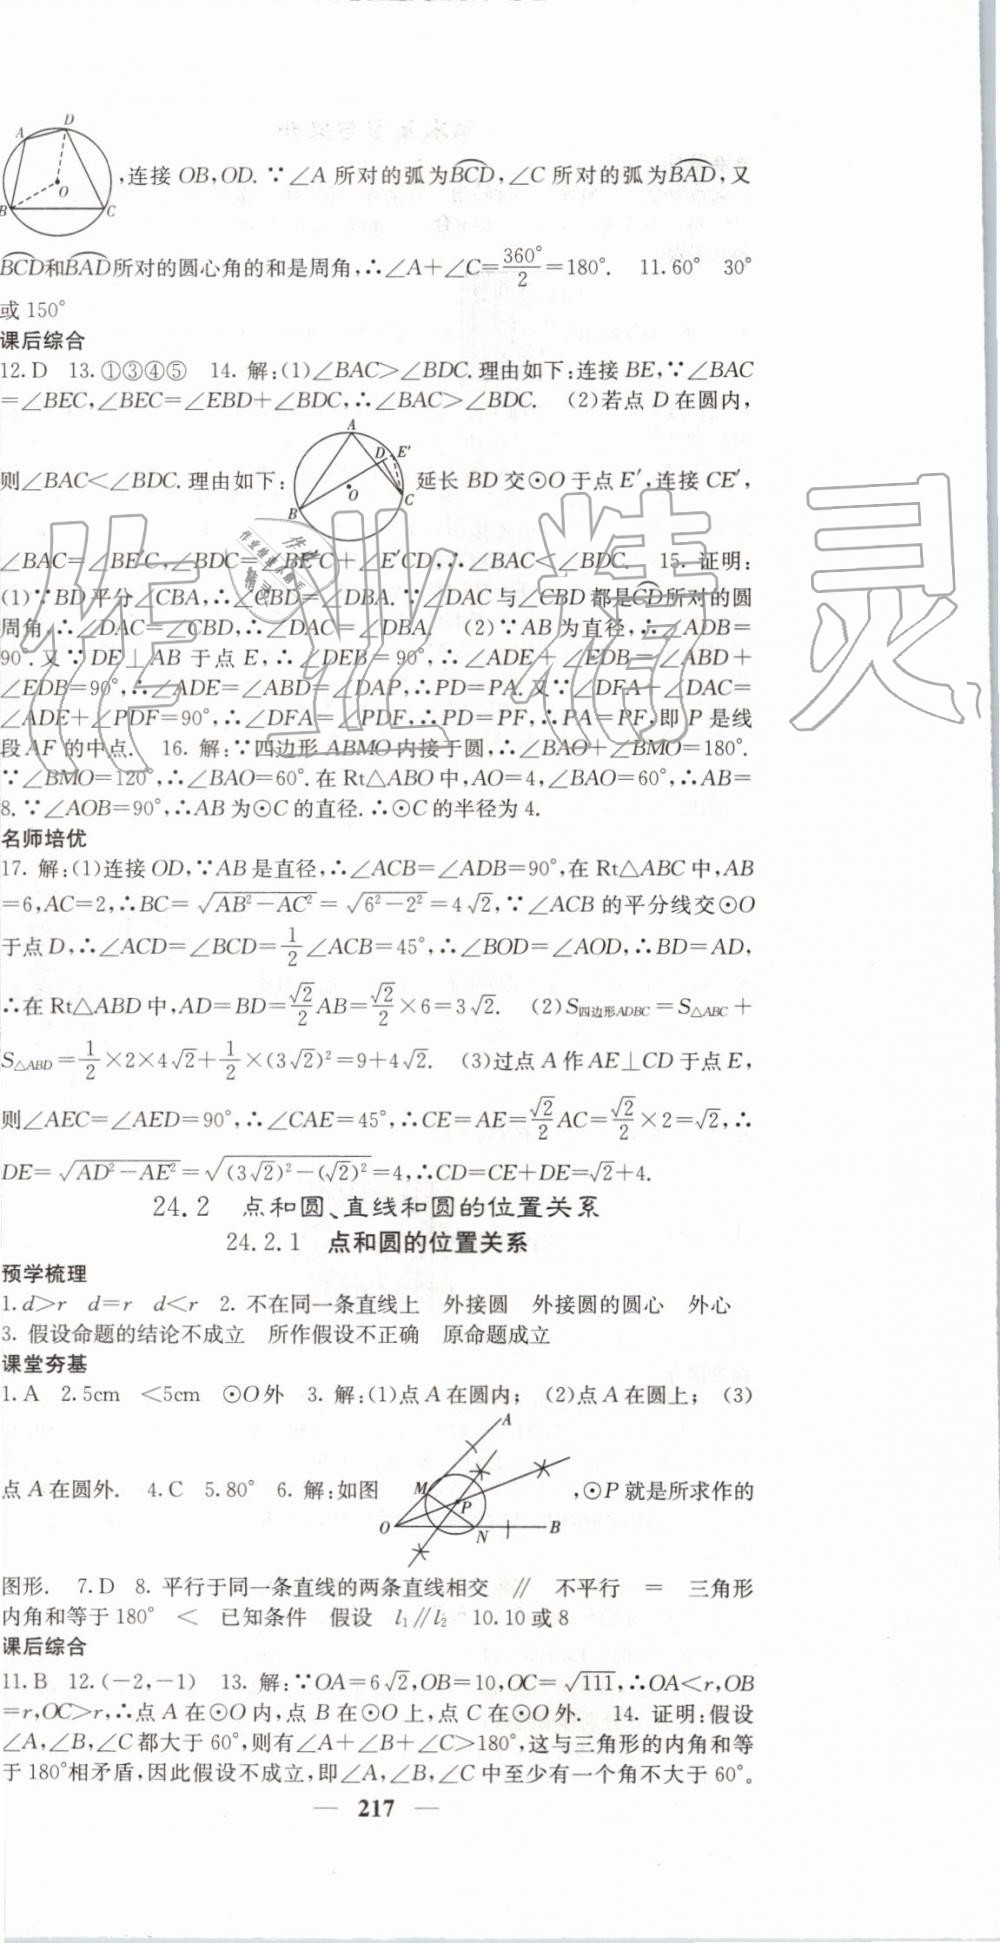 ,连接 OB,OD. ∵∠A 所对的弧为BCD,∠C 所对的弧为BAD,又
BCD和BAD所对的圆心角的和是周角,∴∠A+∠C=360°/2=180°. 11.60° 30°
或 150°
课后综合
12.D 13.①③④⑤ 14. 解:(1)∠BAC>∠BDC.理由如下:连接 BE,∵∠BAC
=∠BEC,∠BEC=∠EBD+∠BDC,∴∠BAC>∠BDC. (2)若点 D 在圆内,
则∠BAC<∠BDC.理由如下: 延长 BD 交⊙O 于点 E′,连接 CE′,
∠BAC=∠BE′C,∠BDC=∠BE′C+∠E′CD,∴∠BAC<∠BDC. 15. 证明:
(1)∵BD平分∠CBA,∴∠CBD=∠DBA.∵∠DAC 与∠CBD 都是CD所对的圆
周角,∴∠DAC=∠CBD,∴∠DAC=∠DBA. (2)∵AB 为直径,∴∠ADB=
90°.又∵DE⊥AB 于点 E,∴∠DEB=90°,∴∠ADE+∠EDB=∠ABD+
∠EDB=90°,∴∠ADE=∠ABD=∠DAP,∴PD=PA.又∵∠DFA+∠DAC=
∠ADE+∠PDF=90°,∴∠DFA=∠PDF,∴PD=PF,∴PA=PF,即 P 是线
段 AF 的中点. 16. 解:∵四边形 ABMO 内接于圆,∴∠BAO+∠BMO=180°.
∵∠BMO=120°,∴∠BAO=60°.在 Rt△ABO 中,AO=4,∠BAO=60°,∴AB=
8.∵∠AOB=90°,∴AB 为⊙C 的直径.∴⊙C 的半径为 4.
名师培优
17. 解:(1)连接 OD,∵AB 是直径,∴∠ACB=∠ADB=90°,在 Rt△ABC 中,AB
=6,AC=2,∴BC=√(AB²-AC²)=√(6²-2²)=4√2,∵∠ACB 的平分线交⊙O
于点 D,∴∠ACD=∠BCD=1/2∠ACB=45°,∴∠BOD=∠AOD,∴BD=AD,
∴在 Rt△ABD 中,AD=BD=√2/2AB=√2/2×6=3√2. (2)S四边形ADBC=S△ABC+
S△ABD=1/2×2×4√2+1/2×(3√2)²=9+4√2. (3)过点 A 作 AE⊥CD 于点 E,
则∠AEC=∠AED=90°,∴∠CAE=45°,∴CE=AE=√2/2AC=√2/2×2=√2,∴
DE=√(AD²-AE²)=√((3√2)²-(√2)²)=4,∴CD=CE+DE=√2+4.
24.2 点和圆、直线和圆的位置关系
24.2.1 点和圆的位置关系
预学梳理
1.d>r d=r d<r 2. 不在同一条直线上 外接圆 外接圆的圆心 外心
3. 假设命题的结论不成立 所作假设不正确 原命题成立
课堂夯基
1.A 2.5cm <5cm ⊙O外 3. 解:(1)点 A 在圆内; (2)点 A 在圆上; (3)
点 A 在圆外. 4.C 5.80° 6. 解:如图 ,⊙P 就是所求作的
图形. 7.D 8. 平行于同一条直线的两条直线相交 ∥ 不平行 = 三角形
内角和等于 180° < 已知条件 假设 l₁∥l₂ 10.10 或 8
课后综合
11.B 12.(-2,-1) 13. 解:∵OA=6√2,OB=10,OC=√111,∴OA<r,OB
=r,OC>r,∴点 A 在⊙O 内,点 B 在⊙O 上,点 C 在⊙O 外. 14. 证明:假设
∠A,∠B,∠C 都大于 60°,则有∠A+∠B+∠C>180°,这与三角形的内角和等
于 180°相矛盾,因此假设不成立,即∠A,∠B,∠C 中至少有一个角不大于 60°。
— 217 —
作业精灵